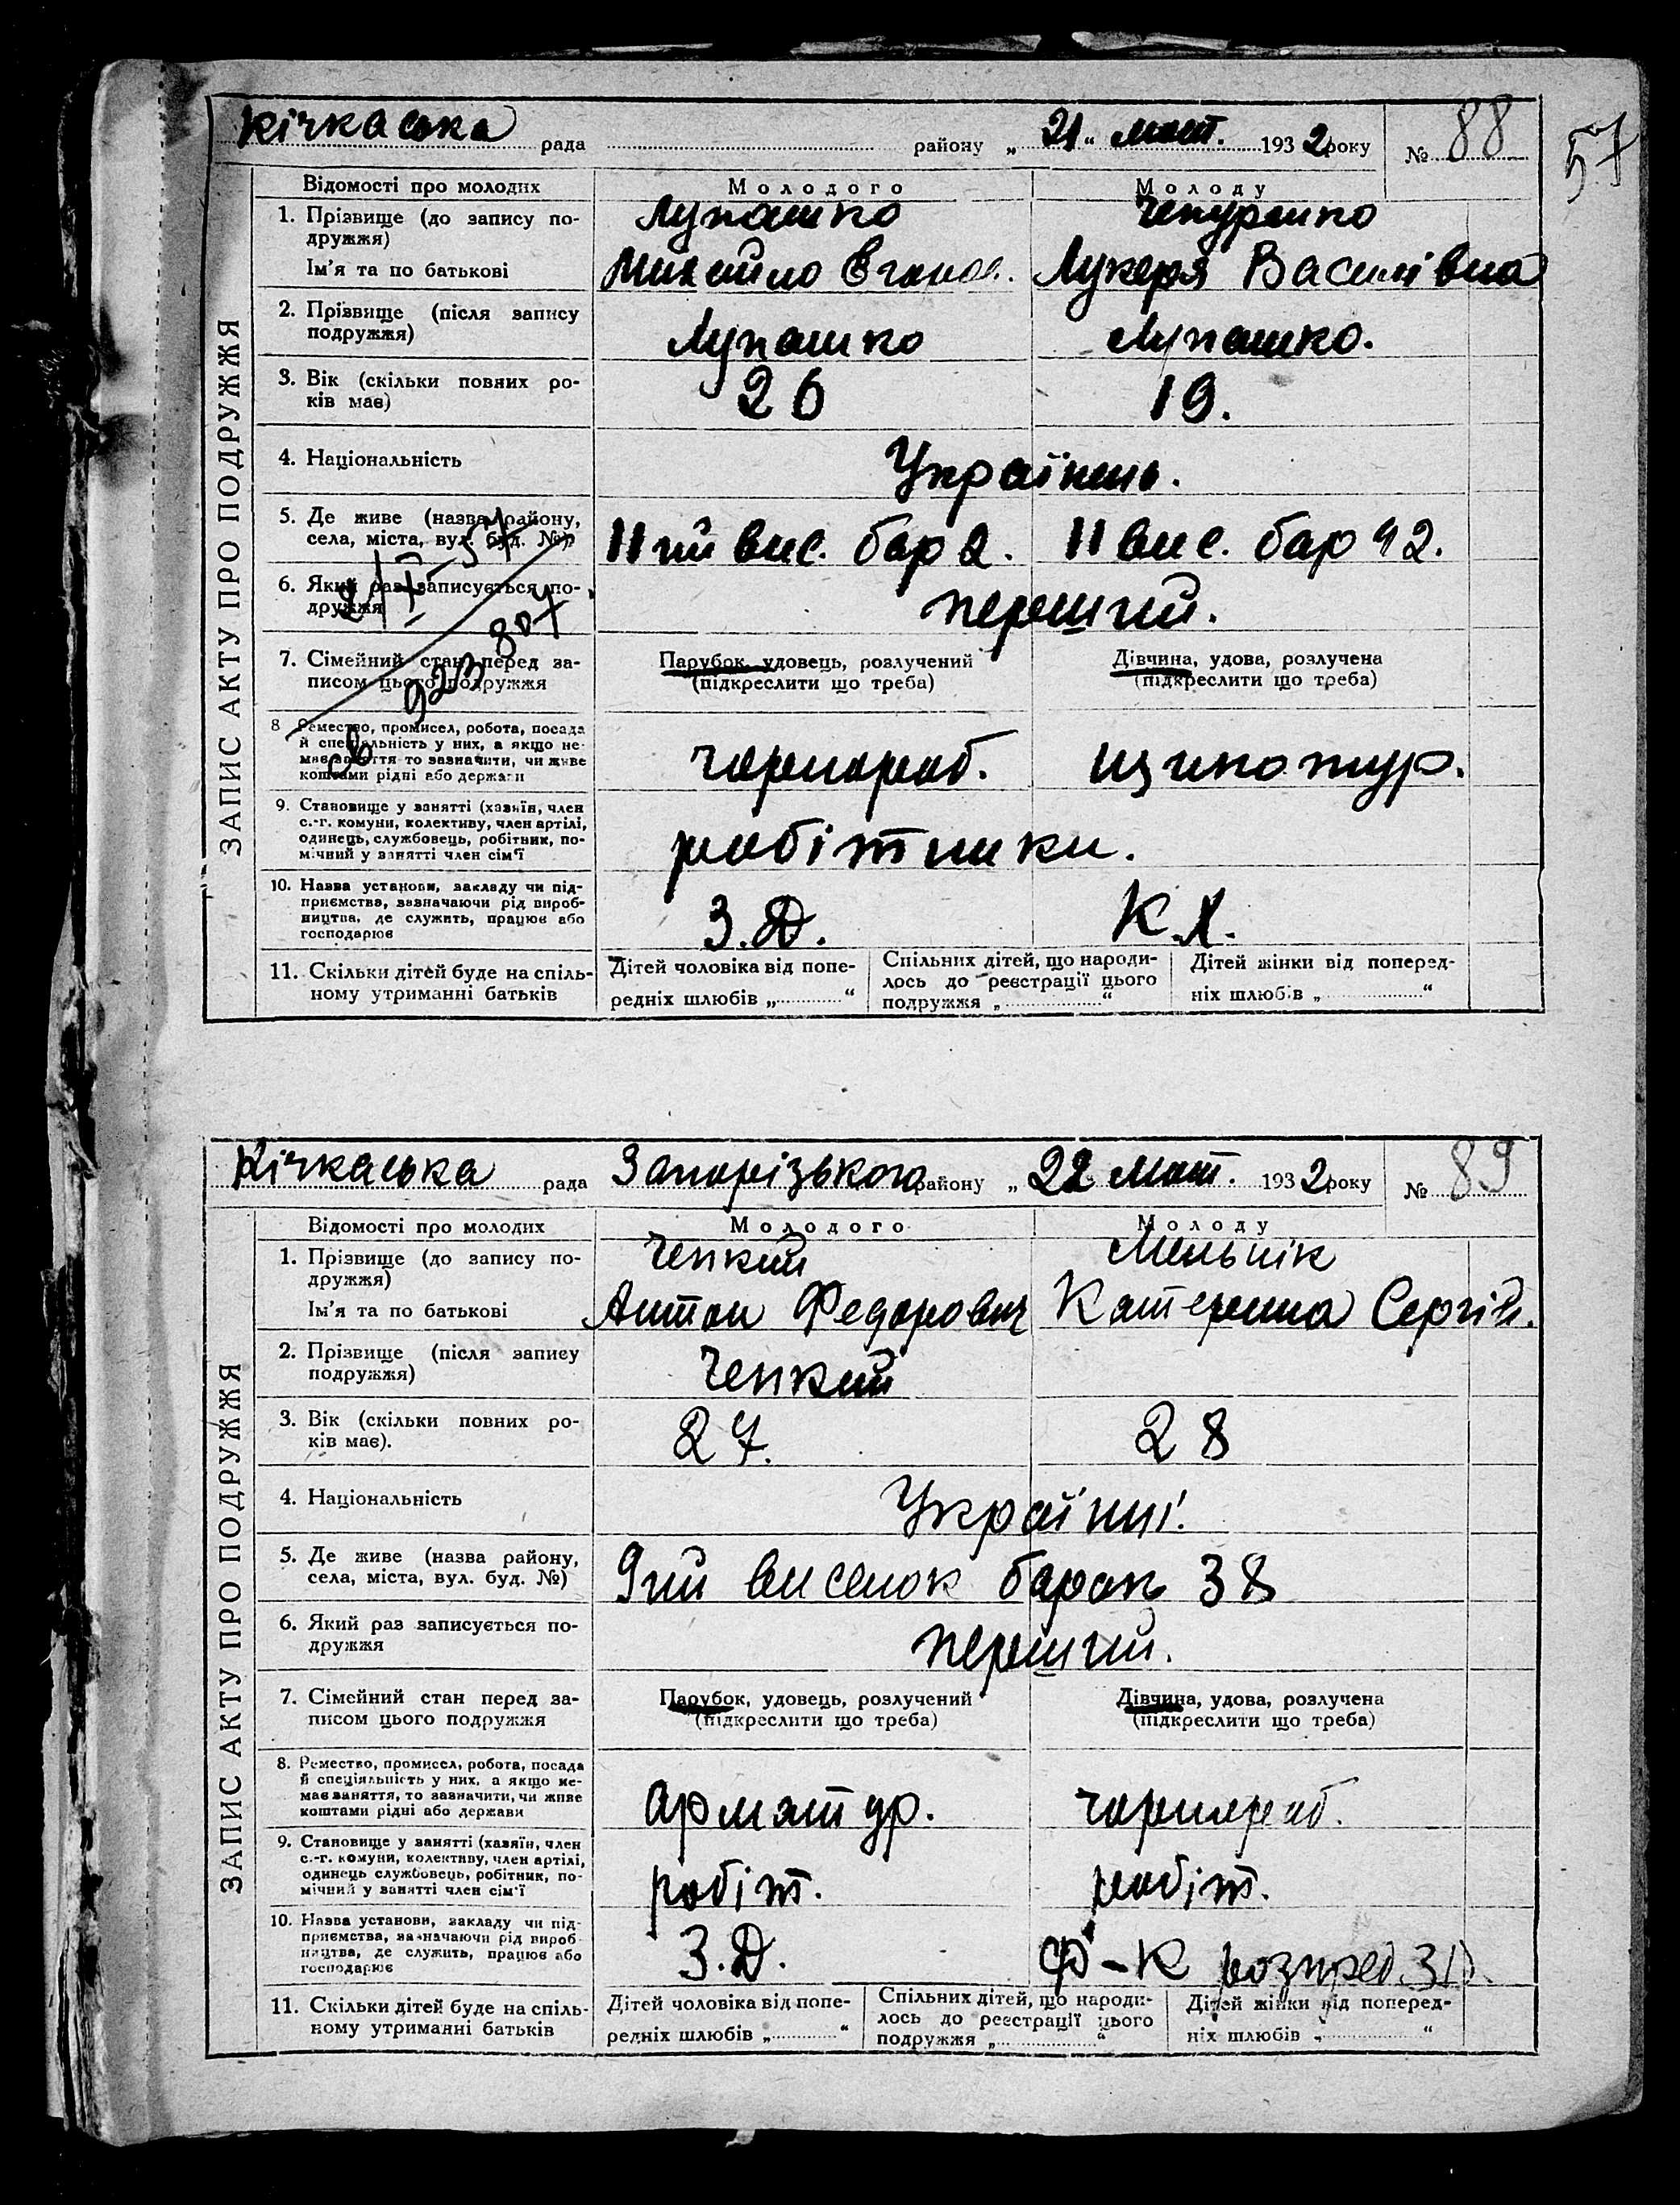 Кічкаська рада району „21“ мант. 1932 року № 88
57
ЗАПИС АКТУ ПРО ПОДРУЖЖЯ
Відомості про молодих Молодого Молоду
1. Прізвище (до запису по-
дружжя) Лупашко Чепурнко
Ім'я та по батькові Михайло Лукеря Василівна
2. Прізвище (після запису
подружжя) Лупашко Лупашко.
3. Вік (скільки повних ро-
ків має) 26 19.
4. Національність Українець.
5. Де живе (назва району,
села, міста, вул. буд. №) 11 ий вис. бар 2. 11 вис. бар 42.
6. Який раз записується по-
дружжя перший.
7. Сімейний стан перед за-
писом цього подружжя
Парубок, удовець, розлучений Дівчина, удова, розлучена
(підкреслити що треба) (підкреслити що треба)
8 Ремество, промисел, робота, посада
й спеціяльність у них, а якщо не-
має заняття то зазначити, чи живе
коштами рідні або держави чорнороб. щикотур.
9. Становище у занятті (хазяїн, член
с.-г. комуни, колективу, член артілі,
одинець, службовець, робітник, по-
мічний у занятті член сім'ї робітники.
10. Назва установи, закладу чи під-
приємства, зазначаючи рід вироб-
ництва, де служить, працює або
господарює З.Д. К.Х.
11. Скільки дітей буде на спіль-
ному утриманні батьків
Дітей чоловіка від попе-
редніх шлюбів „ “
Спільних дітей, що народи-
лось до реєстрації цього
подружжя „ “
Дітей жінки від поперед-
ніх шлюбів „ “
Кічкаська рада Запорізького району „22 мант. 1932 року № 89
ЗАПИС АКТУ ПРО ПОДРУЖЖЯ
Відомості про молодих Молодого Молоду
1. Прізвище (до запису по-
дружжя) Чепкий Мельнік
Ім'я та по батькові Антон Федорович Катерина Сергій.
2. Прізвище (після запису
подружжя) Чепкий
3. Вік (скільки повних ро-
ків має). 27. 28
4. Національність Українці.
5. Де живе (назва району,
села, міста, вул. буд. №) 9ий виселок барак 38
6. Який раз записується по-
дружжя перший.
7. Сімейний стан перед за-
писом цього подружжя
Парубок, удовець, розлучений Дівчина, удова, розлучена
(підкреслити що треба) (підкреслити що треба)
8. Ремество, промисел, робота, посада
й спеціяльність у них, а якщо не-
має заняття, то зазначити, чи живе
коштами рідні або держави арматур. чорнороб.
9. Становище у занятті (хазяїн, член
с.-г. комуни, колективу, член артілі,
одинець службовець, робітник, по-
мічний у занятті член сім'ї робіт. робіт.
10. Назва установи, закладу чи під-
приємства, зазначаючи рід вироб-
ництва, де служить, працює або
господарює З.Д. Ф-К розпред. З.Д.
11. Скільки дітей буде на спіль-
ному утриманні батьків
Дітей чоловіка від попе-
редніх шлюбів „ “
Спільних дітей, що народи-
лось до реєстрації цього
подружжя „ “
Дітей жінки від поперед-
ніх шлюбів „ “